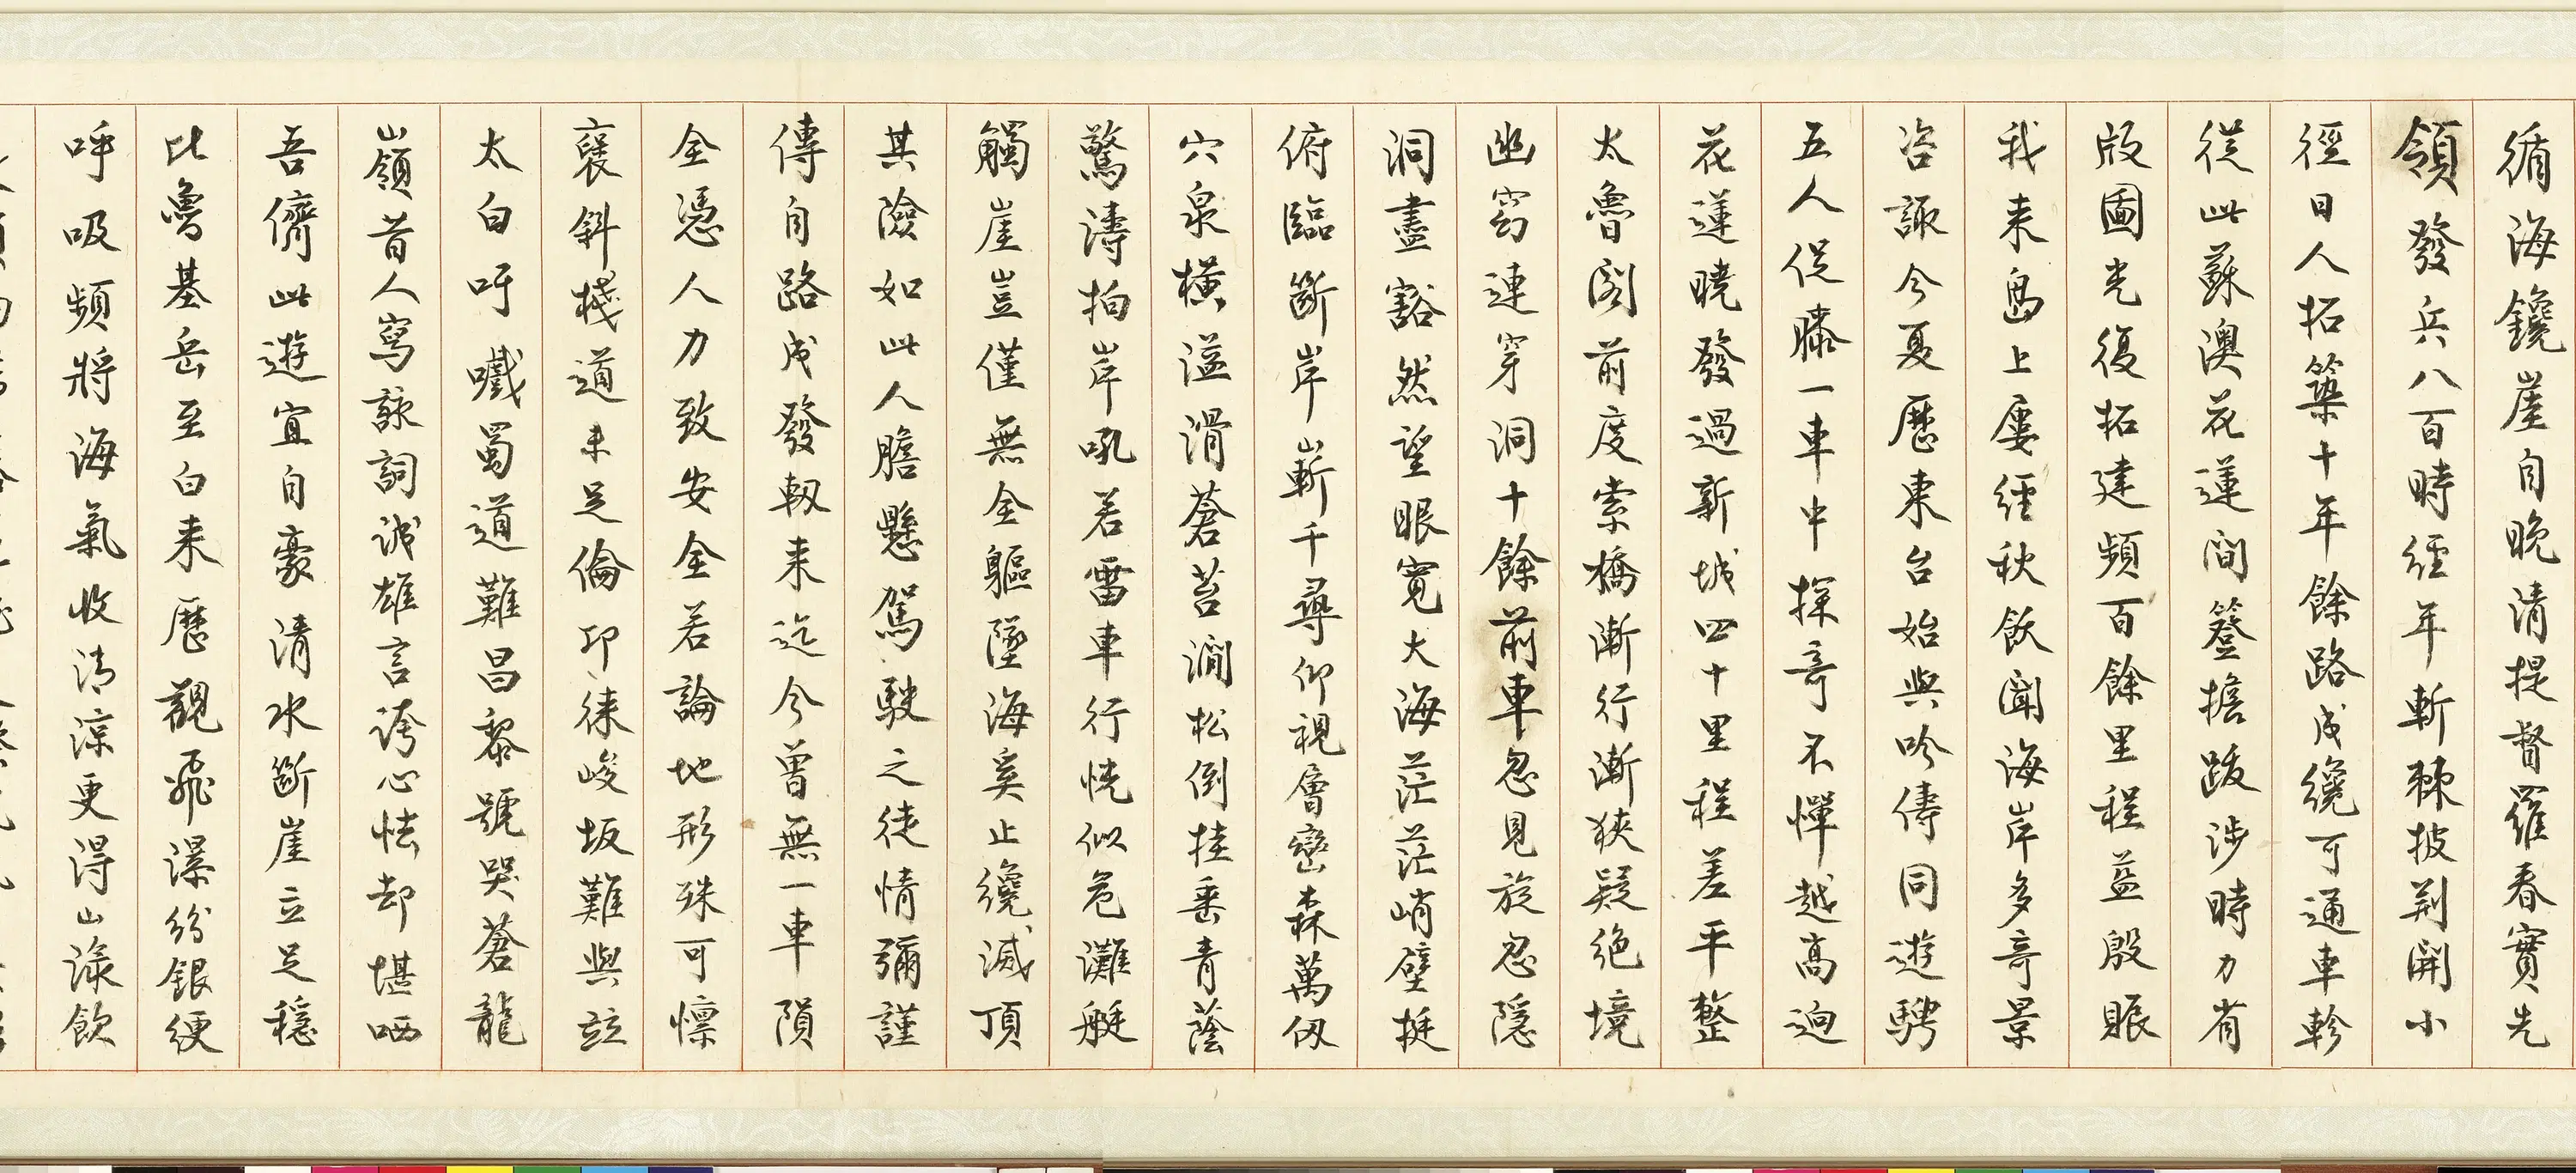 循海鑱崖自晚清提督羅春實先
領發兵八百時經年斬棘披荆開小
徑日人拓築十年餘路成纔可通車軫
從此蘇澳花蓮間簦擔跋涉時力省
版圖光復拓建頻百餘里程益殷賑
我来島上屢經秋飫聞海岸多奇景
咨諏今夏歷東台始與吟儔同遊騁
五人促膝一車中探奇不憚越高迥
花蓮曉發過新城四十里程差平整
太魯閣前度索橋漸行漸狹疑絕境
幽窈連穿洞十餘前車忽見旋忽隱
洞盡豁然望眼寬大海茫茫峭壁挺
俯臨斷岸嶄千尋仰視層巒森萬仭
穴泉橫溢滑蒼苔澗松倒挂垂青蔭
驚濤拍岸吼若雷車行恍似危灘艇
觸崖豈僅無全軀墜海奚止纔滅頂
其險如此人膽懸駕駛之徒情彌謹
傳自路成發軔来迄今曾無一車隕
全憑人力致安全若論地形殊可懍
襃斜棧道未足倫邛崍峻坂難與竝
太白吁嚱蜀道難昌黎號哭蒼龍
嶺昔人寫詠詞誠雄言誇心怯却堪哂
吾儕此遊宜自豪清水斷崖立足穩
比魯基岳至白来歷覩飛瀑紛銀綆
呼吸頻將海氣收清涼更得山淥飲